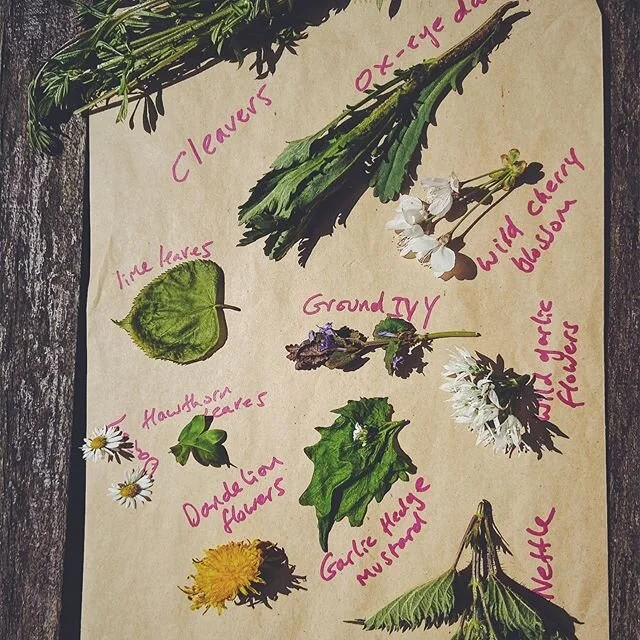 Ox-eye da
Cleavers
Wild Cherry
blossom
lime leaves
Ground IVY
Wild garlic
flowers
Hawthorn
leaves
Dandelion
flowers
Garlic Hedge
mustard
Nettle